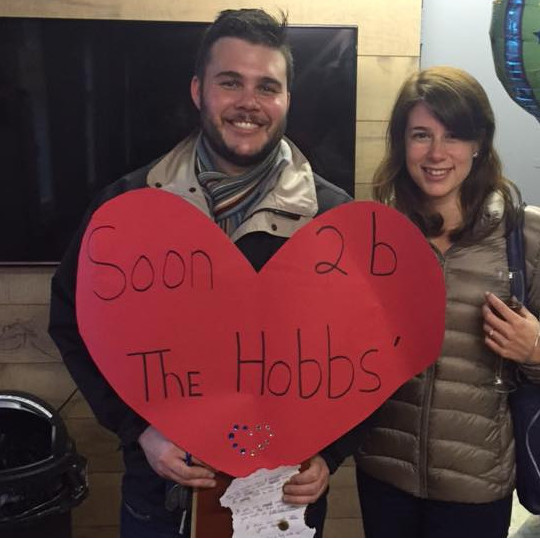 Soon 2 b
The Hobbs'